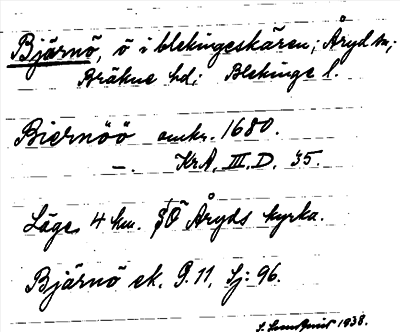 Bjärnö, ö i blekingeskären; Åryd sn;
Bräkne hd; Blekinge l.
Biernöö omkr. 1680.
—. Kr.A. III. D. 35.
Läge 4 km. SÖ Åryds kyrka.
Bjärnö ek. G. 11. Sj: 96.
1938.